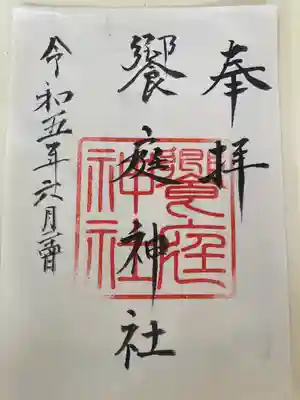 奉拝
饗庭神社
饗庭
神社
令和五年六月